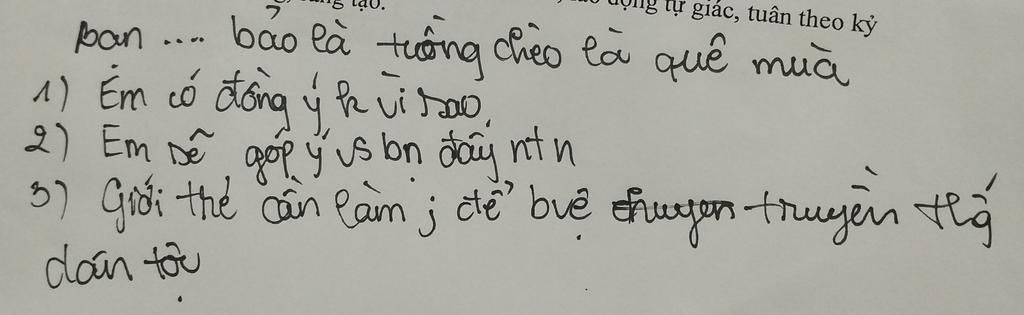 tạo.
động tự giác, tuân theo kỷ
Bạn .... bảo là tuồng chèo là quê mùa
1) Em có đồng ý k vì sao,
2) Em sẽ góp ý vs bn đấy ntn
3) Giới thế cần làm j để bvệ truyền thg
dân tộc